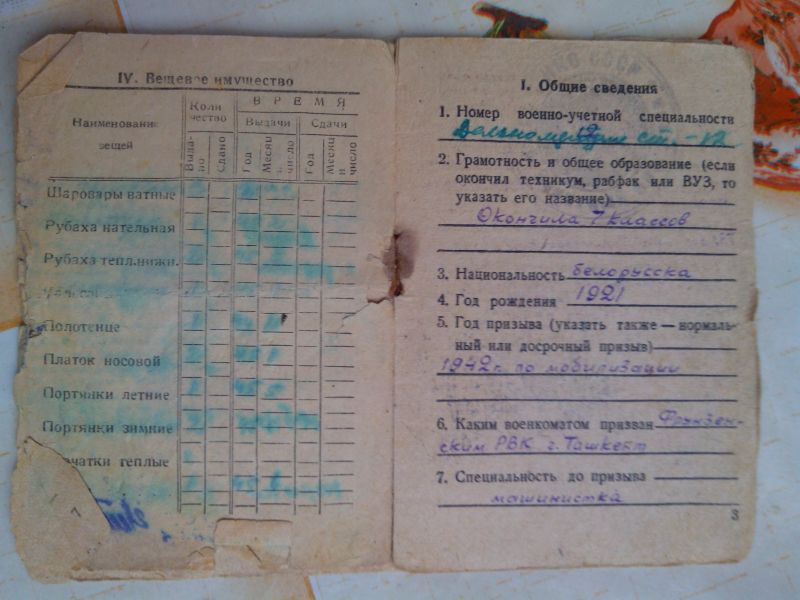 IV. Вещевое имущество
Наименование вещей
Коли чество
ВРЕМЯ
Выдачи
Сдачи
Выда-но
Сдано
Год
Месяц и число
Год
Месяц и число
Шаровары ватные
Рубаха нательная
Рубаха тепл.нижн.
Полотенце
Платок носовой
Портянки летние
Портянки зимние
чатки теплые
I. Общие сведения
1. Номер военно-учетной специальности
2. Грамотность и общее образование (если
окончил техникум, рабфак или ВУЗ, то
указать его название)
Окончила 7 классов
3. Национальность белорусска
4. Год рождения 1921
5. Год призыва (указать также — нормаль-
ный или досрочный призыв)
1942 г. по мобилизации
6. Каким военкоматом призван Фрунзен-
ским РВК г. Ташкент
7. Специальность до призыва
машинистка
3